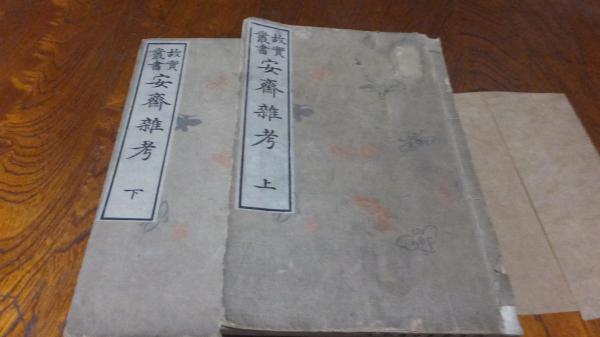 故實
叢書
安齋雜考
上
故實
叢書
安齋雜考
下